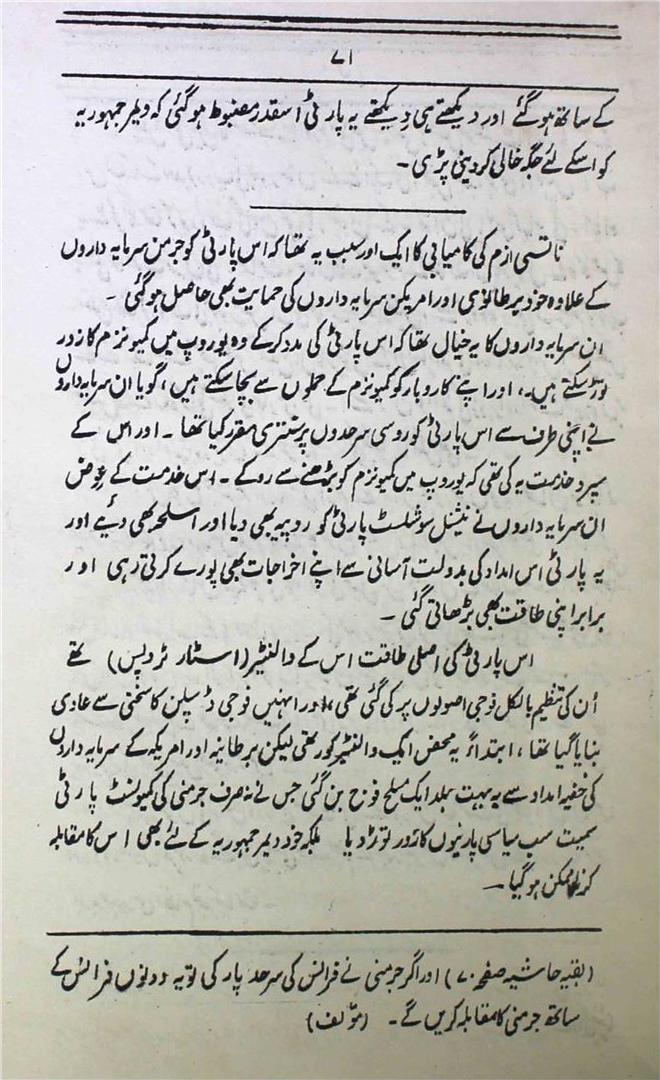 ۷۱
کے ساتھ ہوگئے اور دیکھتے ہی دیکھتے یہ پارٹی اسقدر مضبوط ہوگئی کہ ویلر جمہوریہ
کو اسکے لئے جگہ خالی کردینی پڑی۔
ناتسی ازم کی کامیابی کا ایک اور سبب یہ تھا کہ اس پارٹی کو جرمن سرمایہ داروں
کے علاوہ خود برطانوی اور امریکن سرمایہ داروں کی حمایت بھی حاصل ہوگئی۔
ان سرمایہ داروں کا یہ خیال تھا کہ اس پارٹی کی مدد کرکے وہ یوروپ میں کمیونزم کا زور
توڑ سکتے ہیں۔، اور اپنے کاروبار کو کمیونزم کے حملوں سے بچا سکتے ہیں، گویا ان سرمایہ داروں
نے اپنی طرف سے اس پارٹی کو روسی سرحدوں پر سنتری مقرر کیا تھا۔ اور اس کے
سپرد خدمت یہ کی تھی کہ یوروپ میں کمیونزم کو بڑھنے سے روکے۔ اس خدمت کے عوض
ان سرمایہ داروں نے نیشنل سوشلسٹ پارٹی کو روپیہ بھی دیا اور اسلحہ بھی دیئے اور
یہ پارٹی اس امداد کی بدولت آسانی سے اپنے اخراجات بھی پورے کرتی رہی اور
برابر اپنی طاقت بھی بڑھاتی گئی۔
اس پارٹی کی اصلی طاقت اس کے والنٹیر (اسٹار ٹروپس) تھے
اُن کی تنظیم بالکل فوجی اصولوں پر کی گئی تھی، اور انہیں فوجی ڈسپلن کا سختی سے عادی
بنایا گیا تھا، ابتداءً یہ محض ایک والنٹیر کور تھی لیکن برطانیہ اور امریکہ کے سرمایہ داروں
کی خفیہ امداد سے یہ بہت جلد ایک مسلح فوج بن گئی جس نے نہ صرف جرمنی کی کمیونسٹ پارٹی
سمیت سب سیاسی پارٹیوں کا زور توڑ دیا بلکہ خود ویمر جمہوریہ کے لئے بھی اس کا مقابلہ
کرنا ناممکن ہوگیا۔
(بقیہ حاشیہ صفحہ ۷۰) اور اگر جرمنی نے فرانس کی سرحد پار کی تو یہ دونوں فرانس کے
ساتھ جرمنی کا مقابلہ کریں گے۔ (مؤلف)